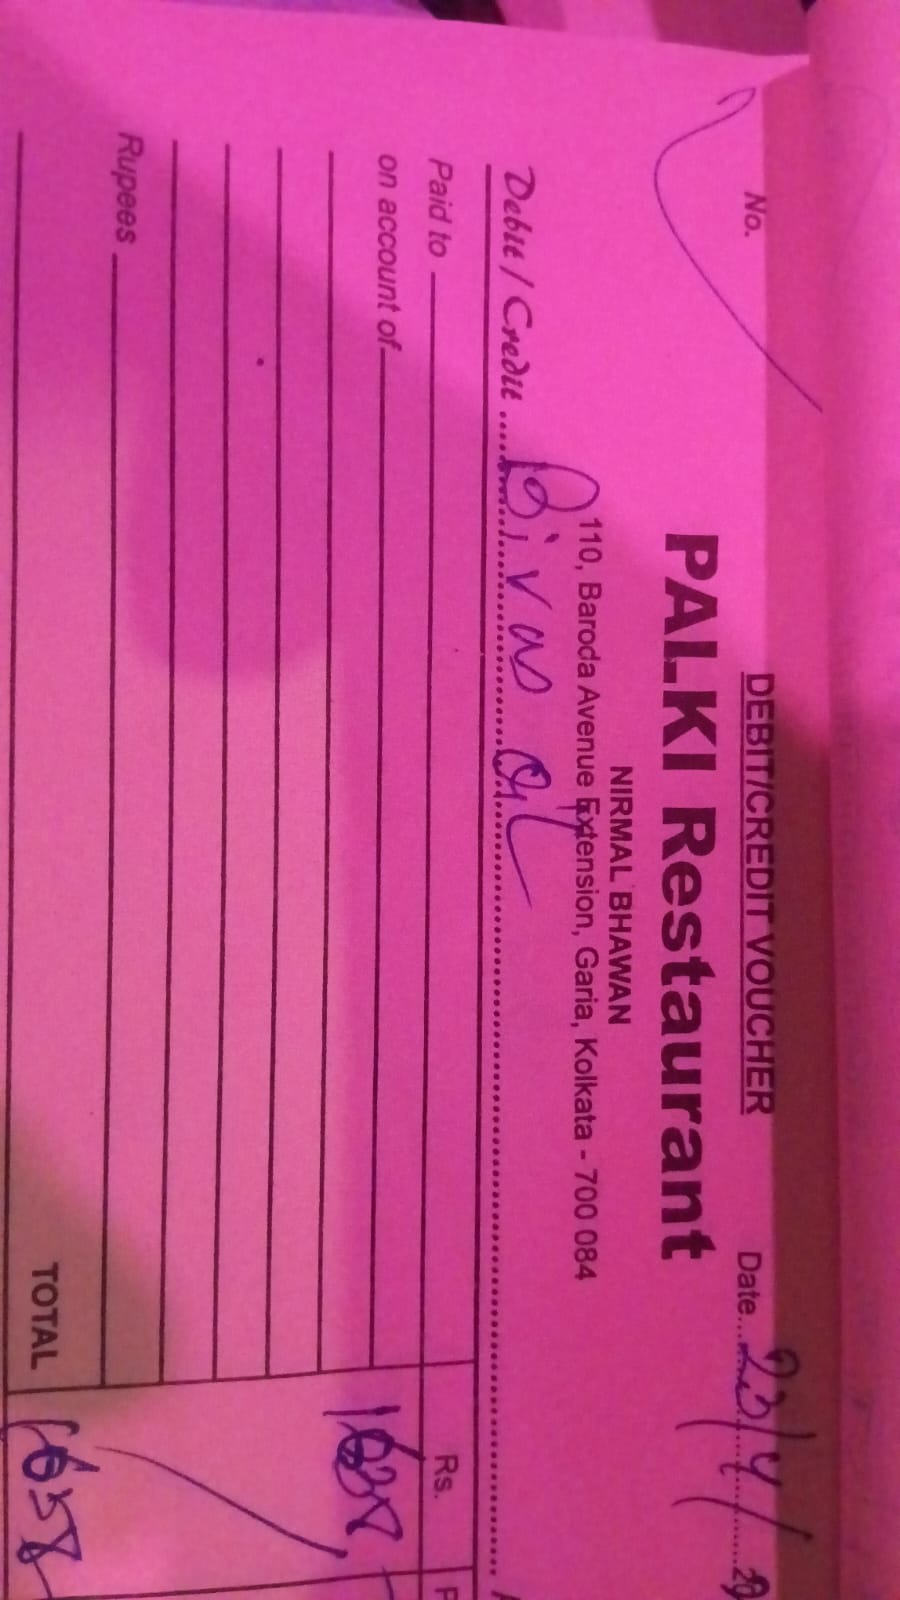 DEBIT/CREDIT VOUCHER
No. Date... 23/4/ 20
PALKI Restaurant
NIRMAL BHAWAN
110, Baroda Avenue Extension, Garia, Kolkata - 700 084
Debit / Credit ..... Bivas
Rs. P
Paid to
on account of 1638
Rupees
TOTAL 1638